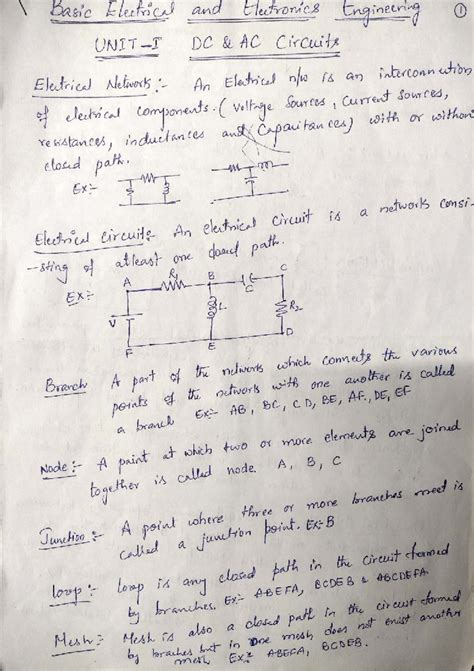 Basic Electrical and Electronics Engineering ①
UNIT-I DC & AC Circuits
Electrical Network :- An Electrical n/w is an interconnection
of electrical components. (Voltage Sources, Current Sources,
resistances, inductances and Capacitances) with or without
closed path.
Ex:-
Electrical Circuit:- An electrical Circuit is a network consi-
-sting of atleast one closed path.
Ex:-
A R1 B C
C
V L R2
F E D
Branch A part of the network which connects the various
points of the network with one another is called
a branch Ex:- AB, BC, CD, BE, AF, DE, EF
Node :- A point at which two or more elements are joined
together is called node. A, B, C
Junction :- A point where three or more branches meet is
called a junction point. Ex:-B
loop :- loop is any closed path in the circuit formed
by branches. Ex:- ABEFA, BCDEB & ABCDEFA
Mesh :- Mesh is also a closed path in the circuit formed
by braches but in one mesh does not exist another
mesh Ex:- ABEFA, BCDEB.